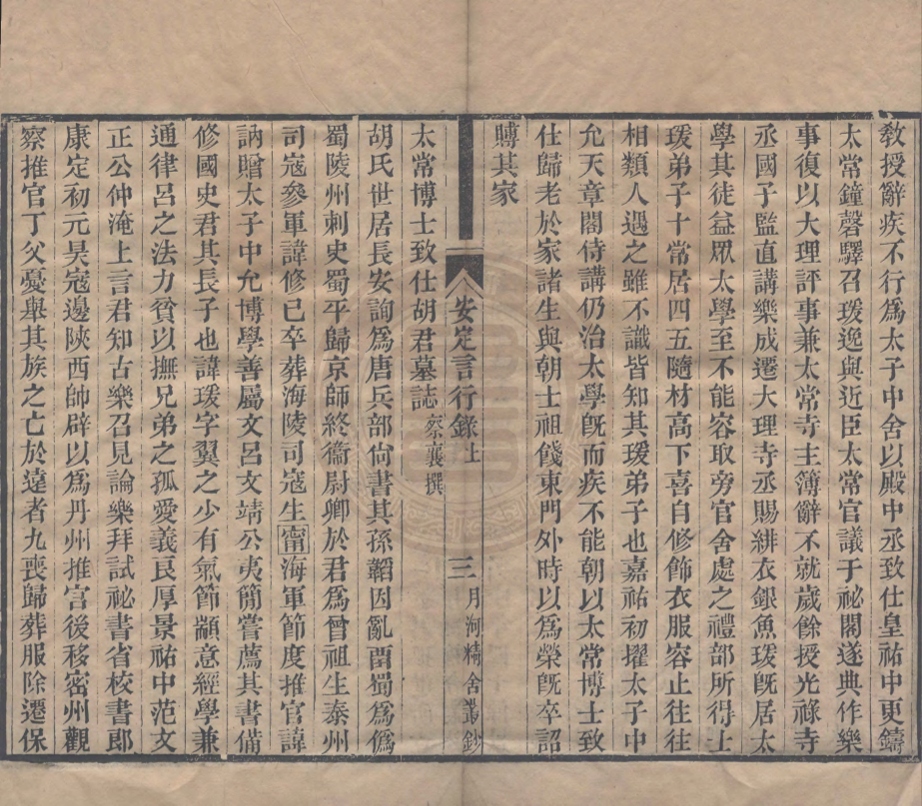 教授辭疾不行爲太子中舍以殿中丞致仕皇祐中更鑄
太常鐘磬驛召瑗逸與近臣太常官議于祕閣遂典作樂
事復以大理評事兼太常寺主簿辭不就歲餘授光祿寺
丞國子監直講樂成遷大理寺丞賜緋衣銀魚瑗旣居太
學其徒益眾太學至不能容取旁官舍處之禮部所得士
瑗弟子十常居四五隨材高下喜自修飾衣服容止往往
相類人遇之雖不識皆知其瑗弟子也嘉祐初擢太子中
允天章閣侍講仍治太學旣而疾不能朝以太常博士致
仕歸老於家諸生與朝士祖餞東門外時以爲榮旣卒詔
賻其家
安定言行錄上 三 月河精舍叢鈔
太常博士致仕胡君墓誌 蔡襄撰
胡氏世居長安詢爲唐兵部尙書其孫韜因亂畱蜀爲僞
蜀陵州刺史蜀平歸京師終衞尉卿於君爲曾祖生泰州
司寇參軍諱修已卒葬海陵司寇生甯海軍節度推官諱
訥贈太子中允博學善屬文呂文靖公夷簡嘗薦其書備
修國史君其長子也諱瑗字翼之少有氣節顓意經學兼
通律呂之法力貧以撫兄弟之孤愛義良厚景祐中范文
正公仲淹上言君知古樂召見論樂拜試祕書省校書郎
康定初元昊寇邊陝西帥辟以爲丹州推官後移密州觀
察推官丁父憂舉其族之亡於遠者九喪歸葬服除遷保